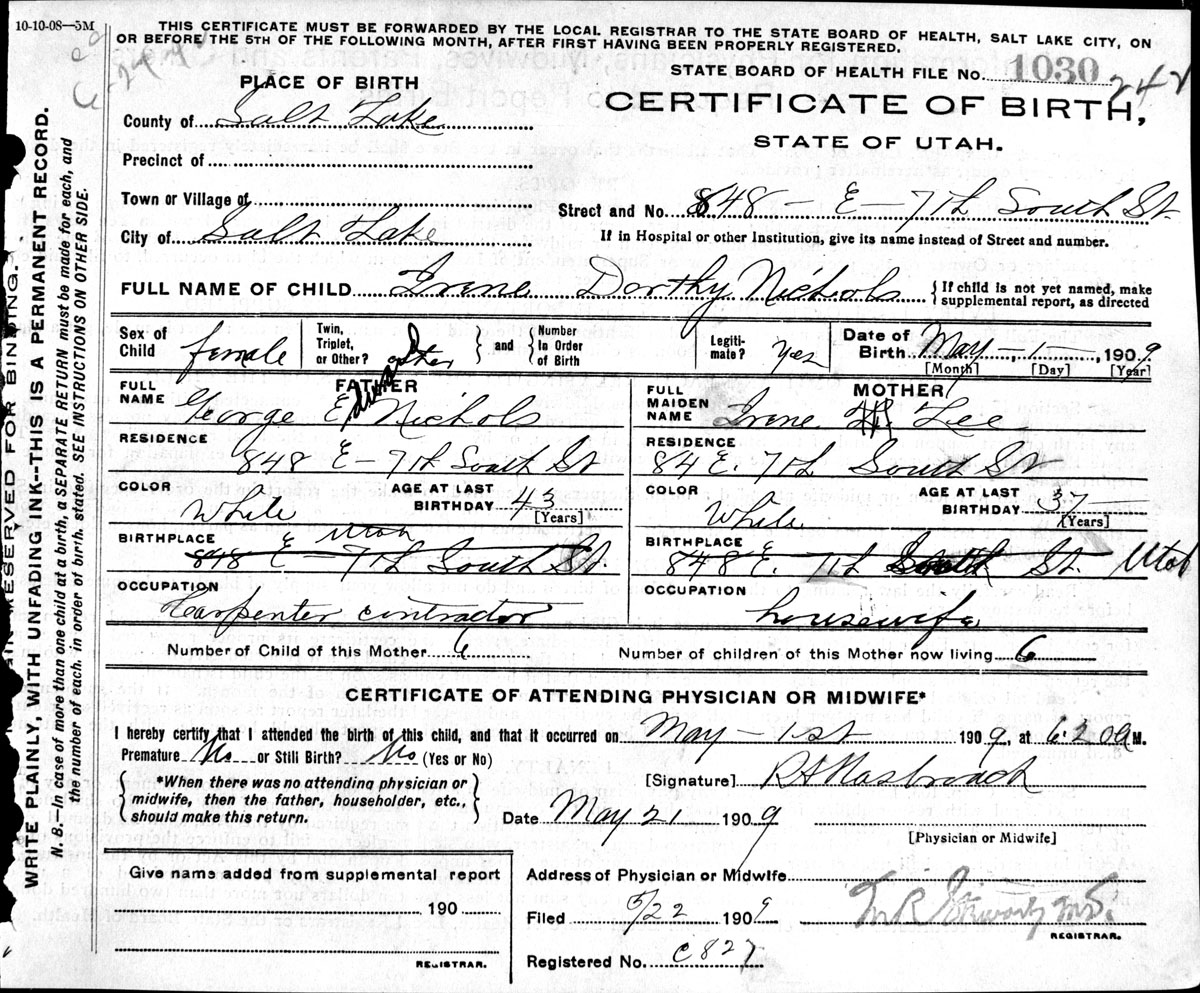 10-10-08—5M
THIS CERTIFICATE MUST BE FORWARDED BY THE LOCAL REGISTRAR TO THE STATE BOARD OF HEALTH, SALT LAKE CITY, ON
OR BEFORE THE 5TH OF THE FOLLOWING MONTH, AFTER FIRST HAVING BEEN PROPERLY REGISTERED.
STATE BOARD OF HEALTH FILE No. 1030
242
PLACE OF BIRTH
CERTIFICATE OF BIRTH,
STATE OF UTAH.
County of Salt Lake
Precinct of
Town or Village of
Street and No. 848 — E — 7th South St.
City of Salt Lake
If in Hospital or other Institution, give its name instead of Street and number.
FULL NAME OF CHILD Irene Dorthy Nichols { If child is not yet named, make
supplemental report, as directed
Sex of Child female
Twin, Triplet, or Other?
{ and } Number In Order of Birth
Legiti-mate? Yes
Date of Birth May — 1 —, 1909
[Month] [Day] [Year]
FATHER
FULL NAME George E Nichols
MOTHER
FULL MAIDEN NAME Irene Lee
RESIDENCE
848 E — 7th South St
RESIDENCE
84 E. 7th South St
COLOR White
AGE AT LAST BIRTHDAY 43 [Years]
COLOR White
AGE AT LAST BIRTHDAY 37 [Years]
BIRTHPLACE
848 E — 7th South St. Utah
BIRTHPLACE
848 E. 7th South St. Utah
OCCUPATION
Carpenter contractor
OCCUPATION
housewife
Number of Child of this Mother 6
Number of children of this Mother now living 6
CERTIFICATE OF ATTENDING PHYSICIAN OR MIDWIFE*
I hereby certify that I attended the birth of this child, and that it occurred on May — 1st 1909, at 6:20 A M.
Premature No or Still Birth? No (Yes or No)
{ *When there was no attending physician or
midwife, then the father, householder, etc.,
should make this return. }
[Signature]
Date May 21 1909
[Physician or Midwife]
Give name added from supplemental report
190
REGISTRAR.
Address of Physician or Midwife
Filed 5/22 1909
REGISTRAR.
Registered No. C827
MARGIN RESERVED FOR BINDING.
WRITE PLAINLY, WITH UNFADING INK--THIS IS A PERMANENT RECORD.
N. B.—In case of more than one child at a birth, a SEPARATE RETURN must be made for each, and
the number of each, in order of birth, stated. SEE INSTRUCTIONS ON OTHER SIDE.